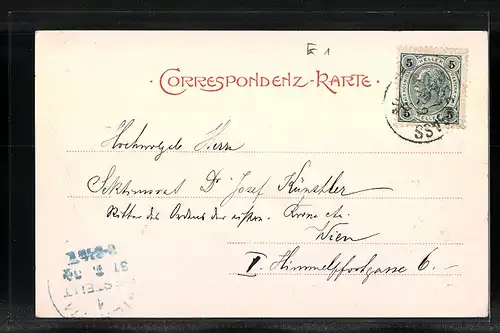 E 1
CORRESPONDENZ-KARTE.
5 HELLER 5
5 5
Hochwolgeb Herrn
Sektionsrat Dr Josef Künstler
Ritter des Ordens der eisern. Krone etc.
Wien
I. Himmelpfortgasse 6.–
BESTELLT